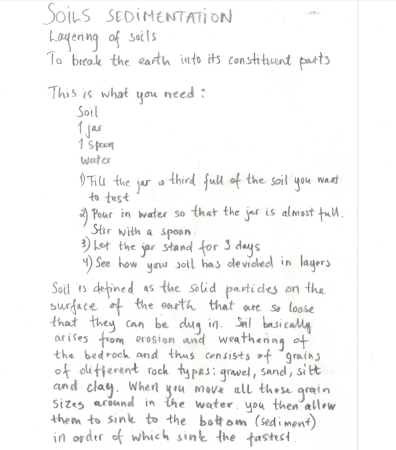 SOILS SEDIMENTATION
Layering of soils
To break the earth into its constituent parts
This is what you need:
Soil
1 jar
1 spoon
water
1) Fill the jar a third full of the soil you want
to test
2) Pour in water so that the jar is almost full.
Stir with a spoon
3) Let the jar stand for 3 days
4) See how your soil has devided in layers
Soil is defined as the solid particles on the
surface of the earth that are so loose
that they can be dug in. Soil basically
arises from erosion and weathering of
the bedrock and thus consists of grains
of different rock types: gravel, sand, silt
and clay. When you move all these grain
sizes around in the water, you then allow
them to sink to the bottom (sediment)
in order of which sink the fastest.